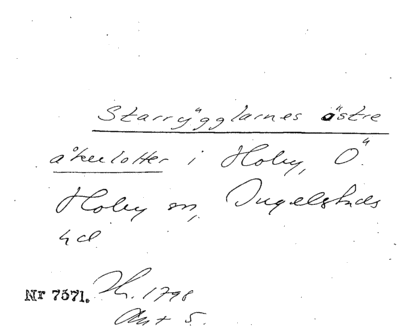 Starryggarnes östre
åkerlotter i Hoby, Ö.
Hoby sn, Ingelstads
hd
Nr 7571. Kr. 1798
Akt 5.